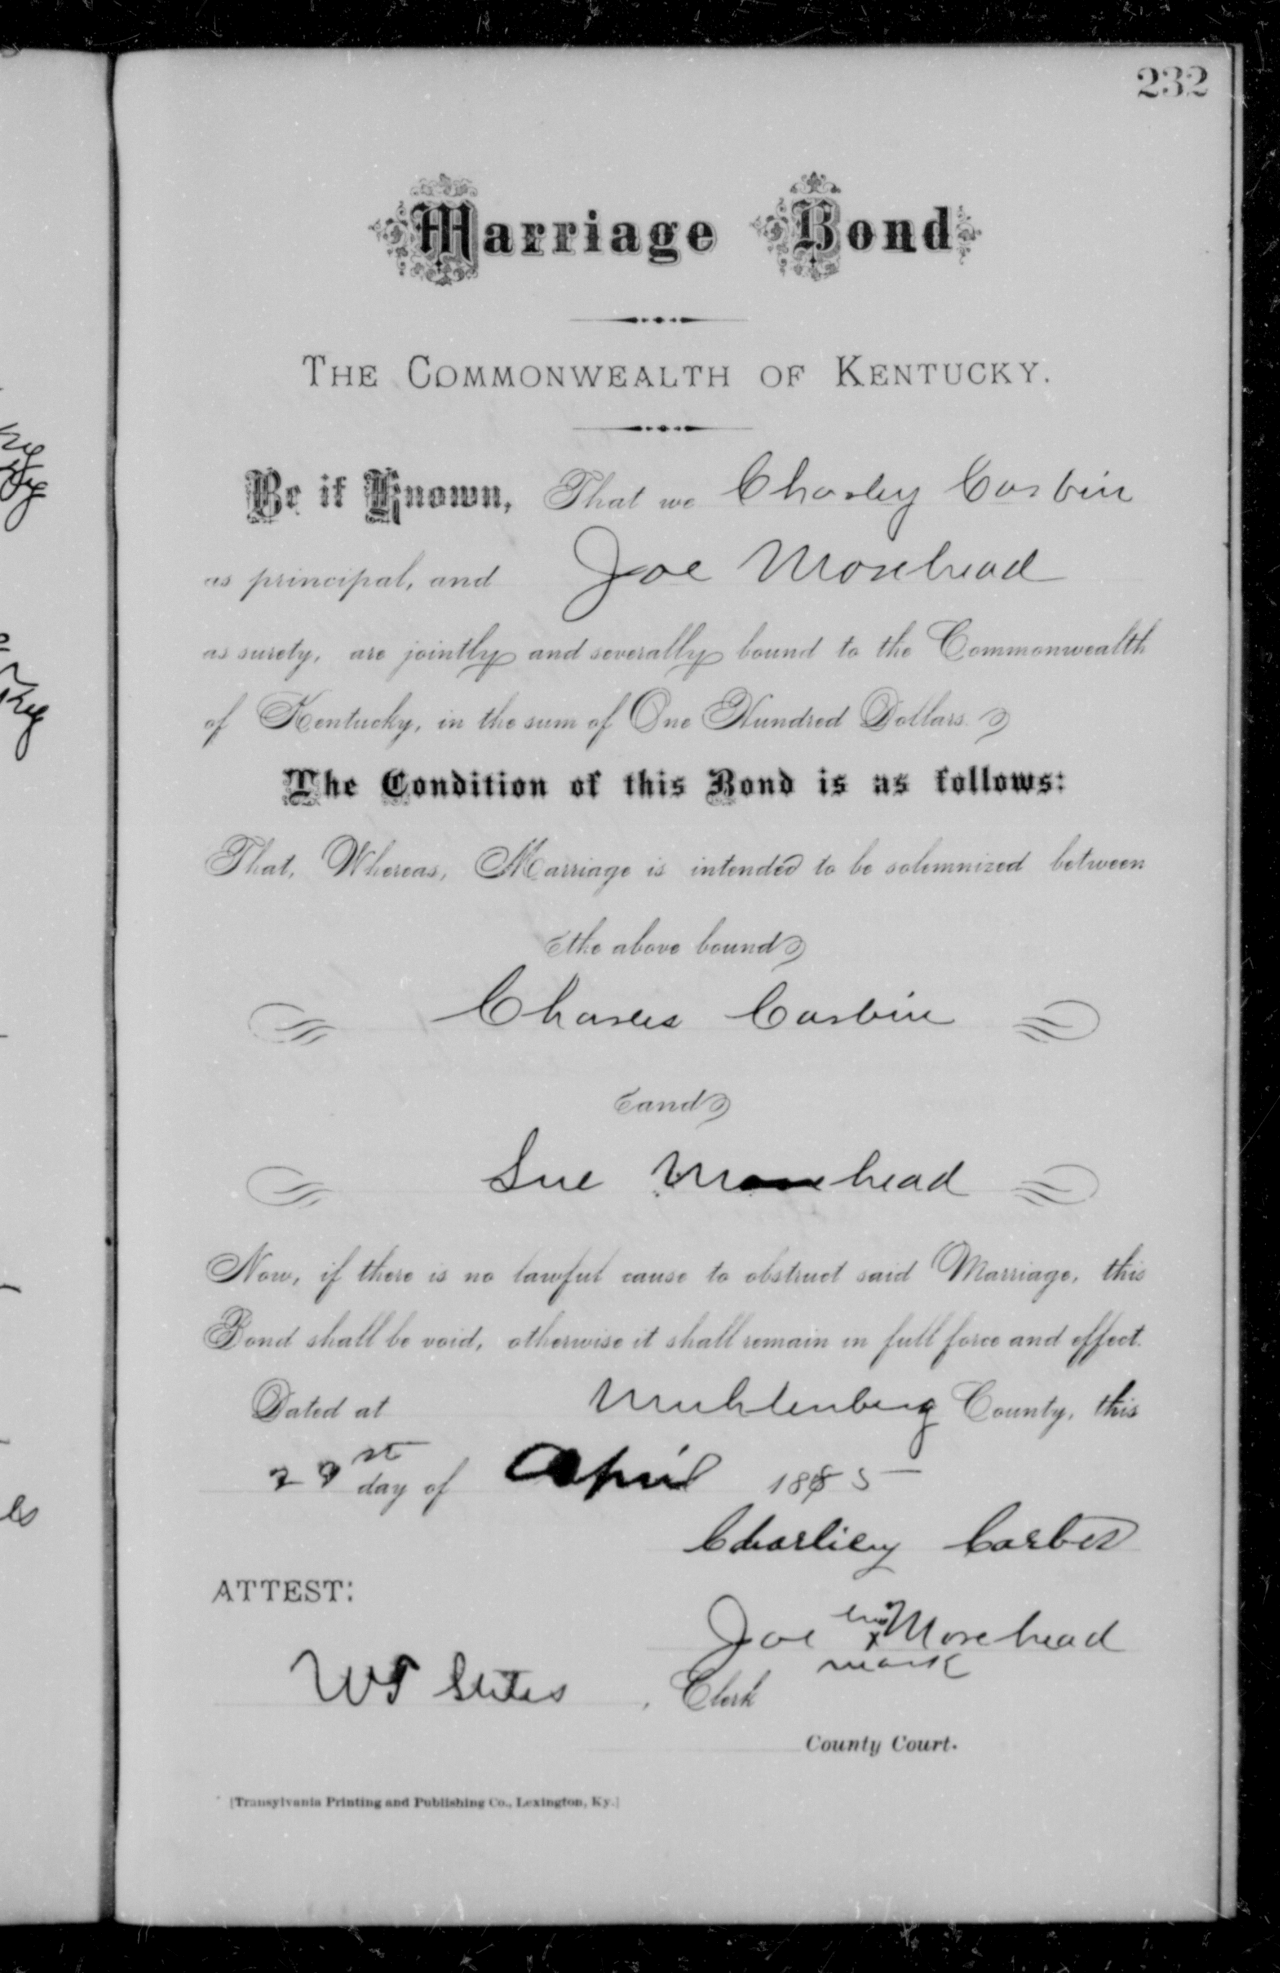 232
Marriage Bond
THE COMMONWEALTH OF KENTUCKY.
Be it Known, That we Charley Corbin
as principal, and Joe Morehead
as surety, are jointly and severally bound to the Commonwealth
of Kentucky, in the sum of One Hundred Dollars.
The Condition of this Bond is as follows:
That, Whereas, Marriage is intended to be solemnized between
the above bound
Charles Corbin
and
Sue Morehead
Now, if there is no lawful cause to obstruct said Marriage, this
Bond shall be void, otherwise it shall remain in full force and effect.
Dated at Muhlenberg County, this
st day of April 1885
Charliey
ATTEST:
Joe his x mark Morehead
Clerk
County Court.
[Transylvania Printing and Publishing Co., Lexington, Ky.]